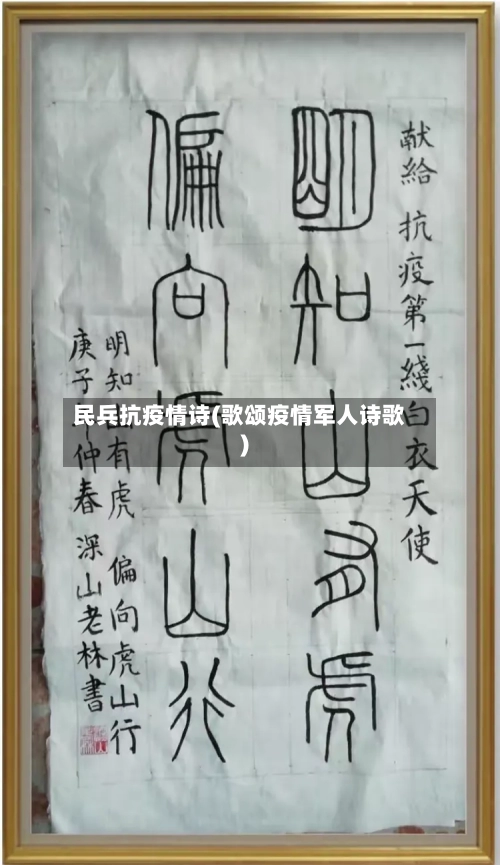 献給 抗疫第一綫白衣天使
明知山有虎
偏向虎山行
明知山有虎 偏向虎山行
庚子仲春 深山老林書
民兵抗疫情诗(歌颂疫情军人诗歌
)